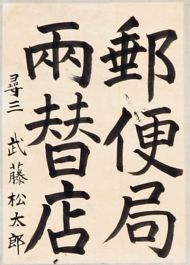 郵便局
兩替店
尋三 武藤松太郎